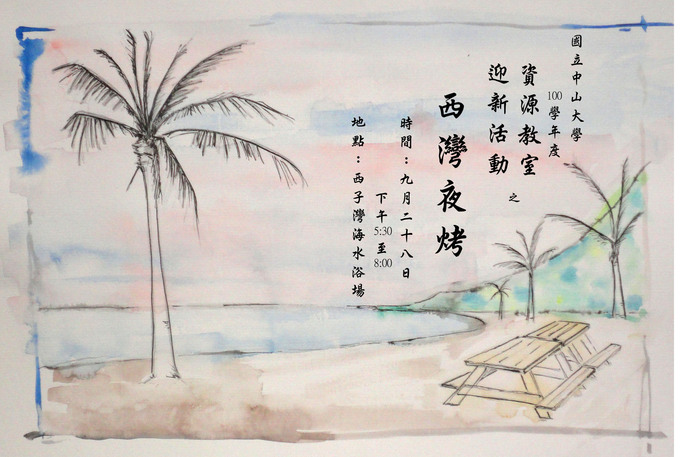 國立中山大學
100學年度
資源教室
迎新活動
之
西灣夜烤
時間：九月二十八日
下午5:30至8:00
地點：西子灣海水浴場